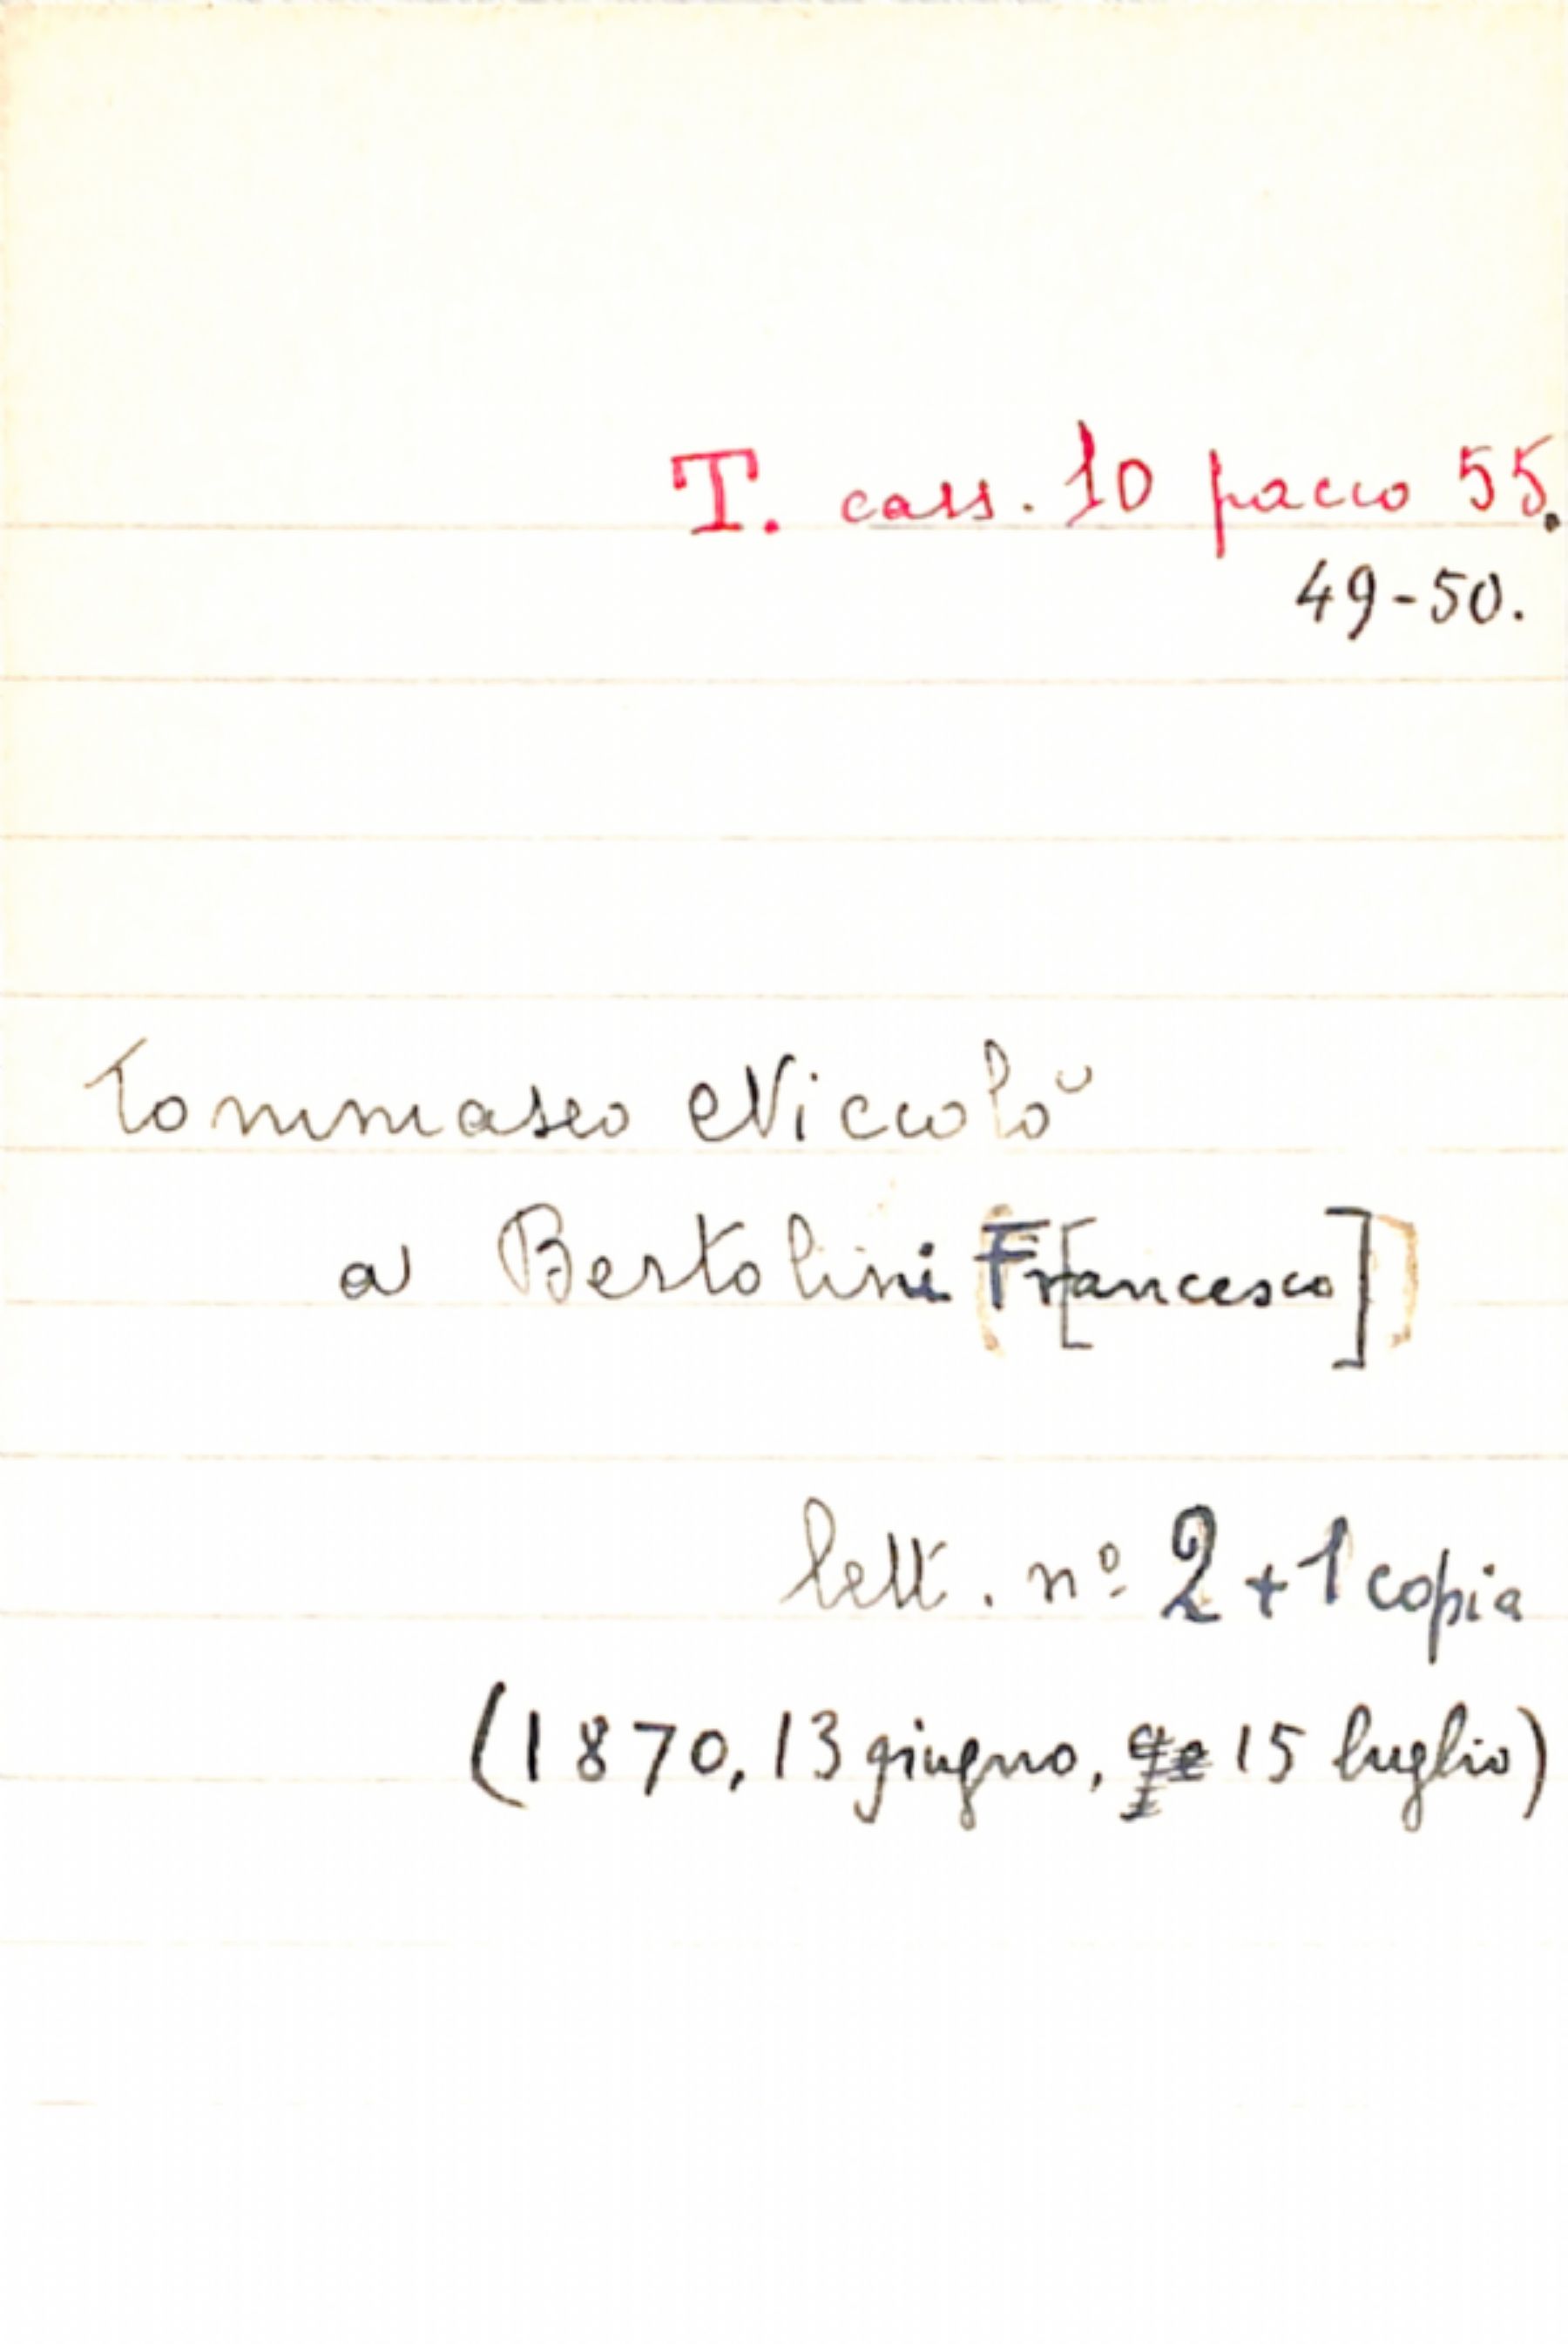 T. cass. 10 pacco 55.
49-50.
Tommaseo Niccolò
a Bertolini (Fr[ancesco])
lett. nº 2 + 1 copia
(1870, 13 giugno, 15 luglio)